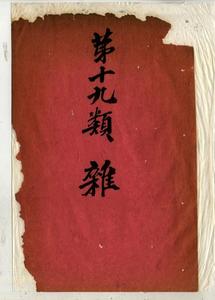 第十九類 雜